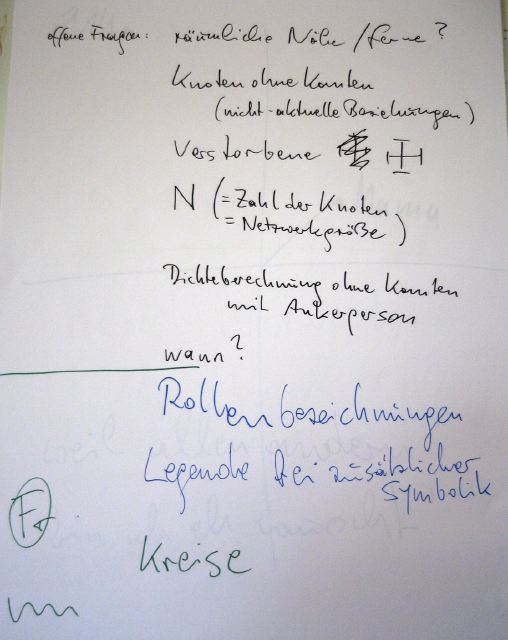 offene Fragen: räumliche Nähe / ferne?
Knoten ohne Kanten
(nicht-aktuelle Beziehungen)
Verstorbene
N (= Zahl der Knoten
= Netzwerkgröße)
Dichteberechnung ohne Kanten
mit Ankerperson
wann?
Rollenbezeichnungen
Legende bei zusätzlicher
Symbolik
Kreise